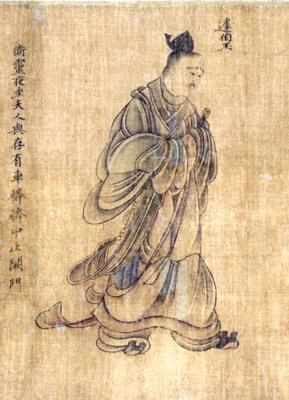 蘧伯玉
衛靈夜坐夫人與存有車轔轔中止闕門